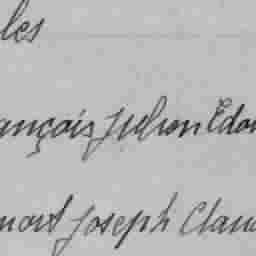 les
ançois Julien Edou
mort Joseph Clau